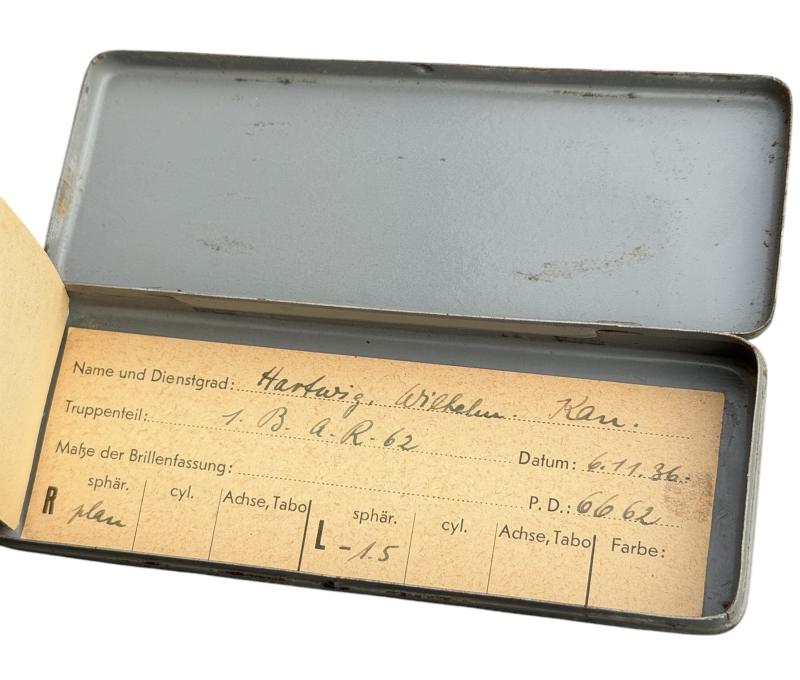 Name und Dienstgrad: Hartwig, Wilhelm. Kan.
Truppenteil: 1. B. A. R. 62
Datum: 6.11.36.
Maße der Brillenfassung:
P. D.: 66 62
R sphär. plan cyl. Achse, Tabo L sphär. -1.5 cyl. Achse, Tabo Farbe: